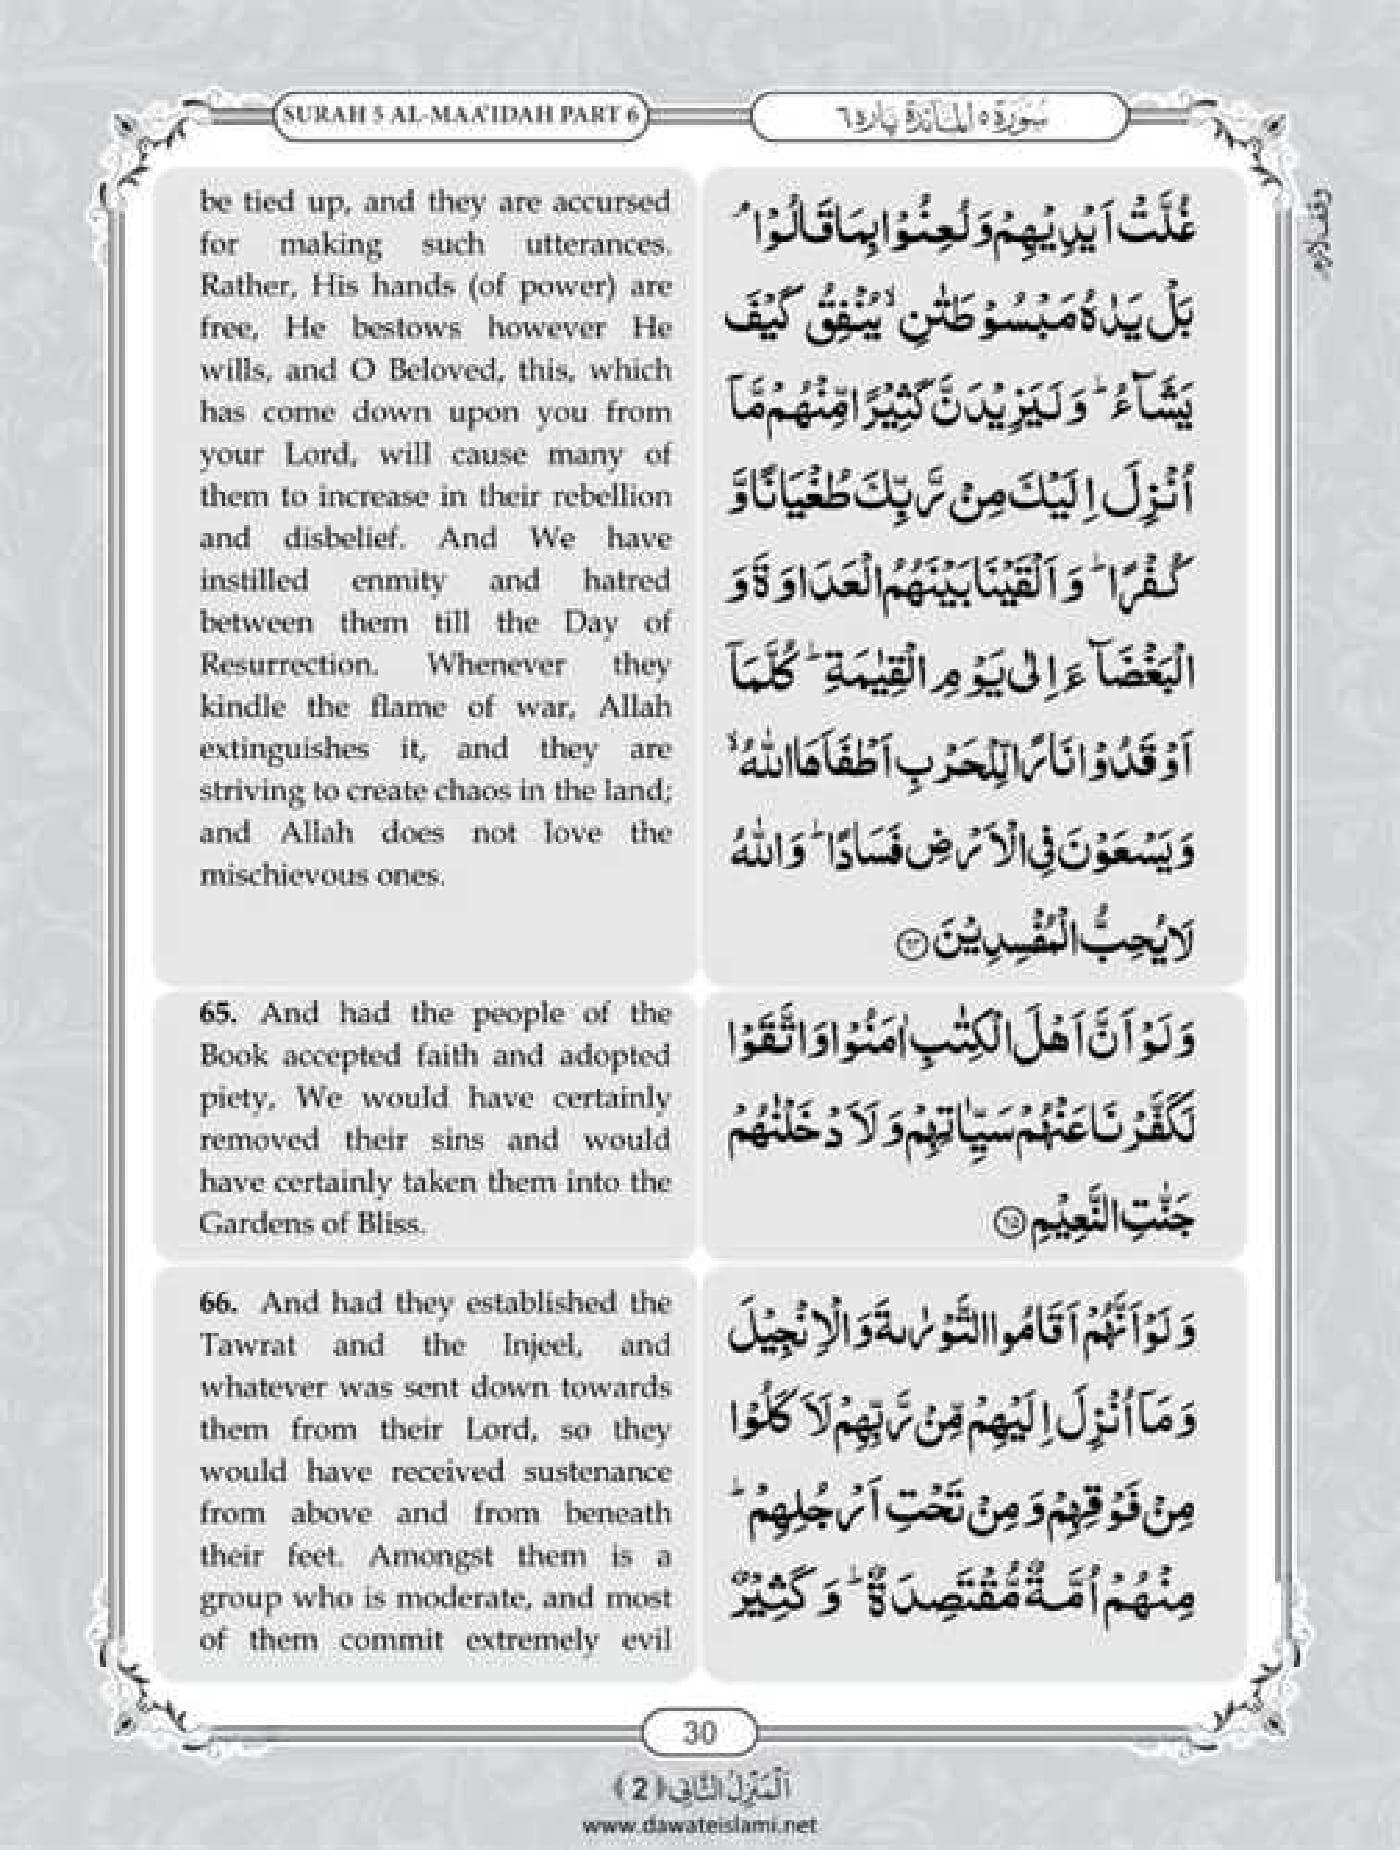 SURAH 5 AL-MAA'IDAH PART 6
سُوْرَة ٥ اَلْمَآئِدَة پارہ ٦
be tied up, and they are accursed
for making such utterances.
Rather, His hands (of power) are
free, He bestows however He
wills, and O Beloved, this, which
has come down upon you from
your Lord, will cause many of
them to increase in their rebellion
and disbelief. And We have
instilled enmity and hatred
between them till the Day of
Resurrection. Whenever they
kindle the flame of war, Allah
extinguishes it, and they are
striving to create chaos in the land;
and Allah does not love the
mischievous ones.
غُلَّتْ اَيْدِيْهِمْ وَ لُعِنُوْا بِمَا قَالُوْا ۘ
بَلْ يَدٰهُ مَبْسُوْطَتٰنِ ۙ يُنْفِقُ كَيْفَ
يَشَآءُ ؕ وَ لَيَزِيْدَنَّ كَثِيْرًا مِّنْهُمْ مَّاۤ
اُنْزِلَ اِلَيْكَ مِنْ رَّبِّكَ طُغْيَانًا وَّ
كُفْرًا ؕ وَ اَلْقَيْنَا بَيْنَهُمُ الْعَدَاوَةَ وَ
الْبَغْضَآءَ اِلٰى يَوْمِ الْقِيٰمَةِ ؕ كُلَّمَاۤ
اَوْقَدُوْا نَارًا لِّلْحَرْبِ اَطْفَاَهَا اللّٰهُ ۙ
وَ يَسْعَوْنَ فِى الْاَرْضِ فَسَادًا ؕ وَ اللّٰهُ
لَا يُحِبُّ الْمُفْسِدِيْنَ ﴿٦٤﴾
وقف لازم
65. And had the people of the
Book accepted faith and adopted
piety, We would have certainly
removed their sins and would
have certainly taken them into the
Gardens of Bliss.
وَ لَوْ اَنَّ اَهْلَ الْكِتٰبِ اٰمَنُوْا وَ اتَّقَوْا
لَكَفَّرْنَا عَنْهُمْ سَيِّاٰتِهِمْ وَ لَاَدْخَلْنٰهُمْ
جَنّٰتِ النَّعِيْمِ ﴿٦٥﴾
66. And had they established the
Tawrat and the Injeel, and
whatever was sent down towards
them from their Lord, so they
would have received sustenance
from above and from beneath
their feet. Amongst them is a
group who is moderate, and most
of them commit extremely evil
وَ لَوْ اَنَّهُمْ اَقَامُوا التَّوْرٰىةَ وَ الْاِنْجِيْلَ
وَ مَاۤ اُنْزِلَ اِلَيْهِمْ مِّنْ رَّبِّهِمْ لَاَكَلُوْا
مِنْ فَوْقِهِمْ وَ مِنْ تَحْتِ اَرْجُلِهِمْ ؕ
مِنْهُمْ اُمَّةٌ مُّقْتَصِدَةٌ ؕ وَ كَثِيْرٌ
30
اَلْمَنْزِلُ الثَّانِی ﴿2﴾
www.dawateislami.net